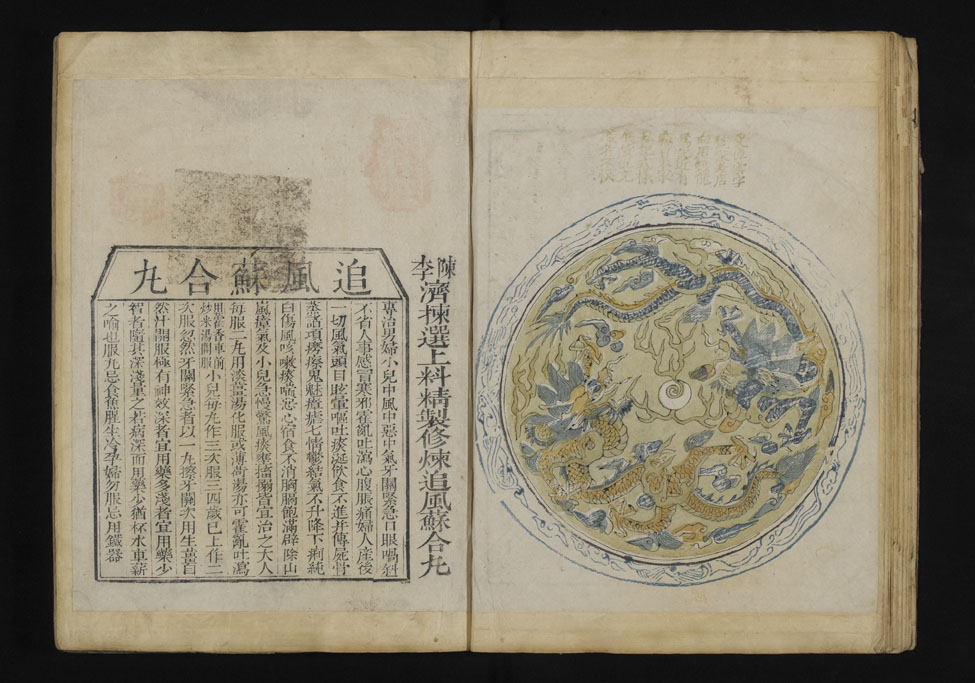 陳李濟揀選上料精製修煉追風蘇合丸
追風蘇合丸
專治男婦小兒中風中惡中氣牙關緊急口眼喎斜
不省人事感冒寒邪霍亂吐瀉心腹脹痛婦人產後
一切風氣頭目眩暈嘔吐痰涎飲食不進并傳屍骨
蒸諸項癆瘵鬼魅瘧七情鬱結氣不升降下痢純
白傷風咳嗽痰喘惡心宿食不消胸膈飽滿辟除山
嵐瘴氣及小兒急慢驚風痰壅搐搦皆宜治之大人
每服一丸用淡薑湯化服或薄荷湯亦可霍亂吐瀉
用藿香車前炒米湯開服小兒每丸作三次服三四歲已上作二
次服忽然牙關緊急者以一丸擦牙關次用生薑自
然汁開服極有神效深者宜用藥多淺者宜用藥少
智者隨其深淺量之若病深而用藥少猶杯水車薪
之喻也服丸忌食魚腥生冷孕婦勿服忌用鐵器